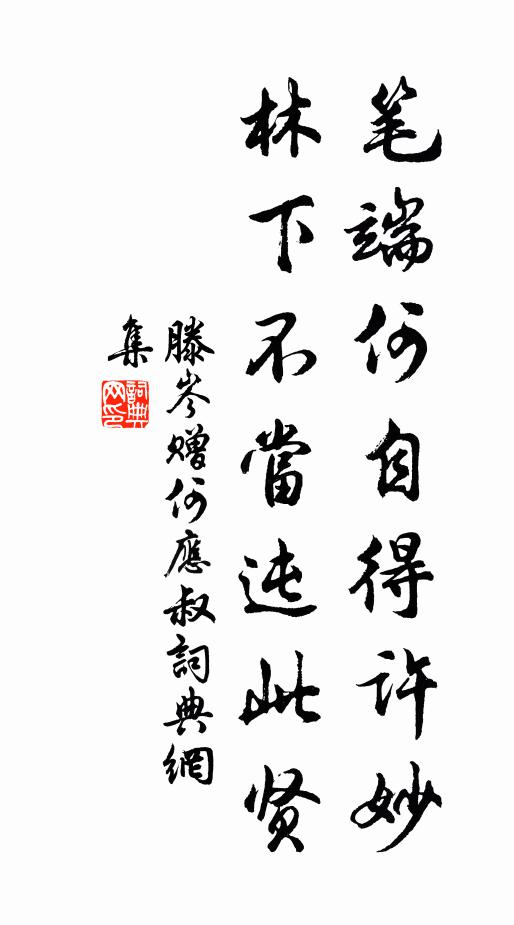 笔端何自得许妙
林下不當迍此贤
滕岑赠何應叔詞典網
集
詞典
网印